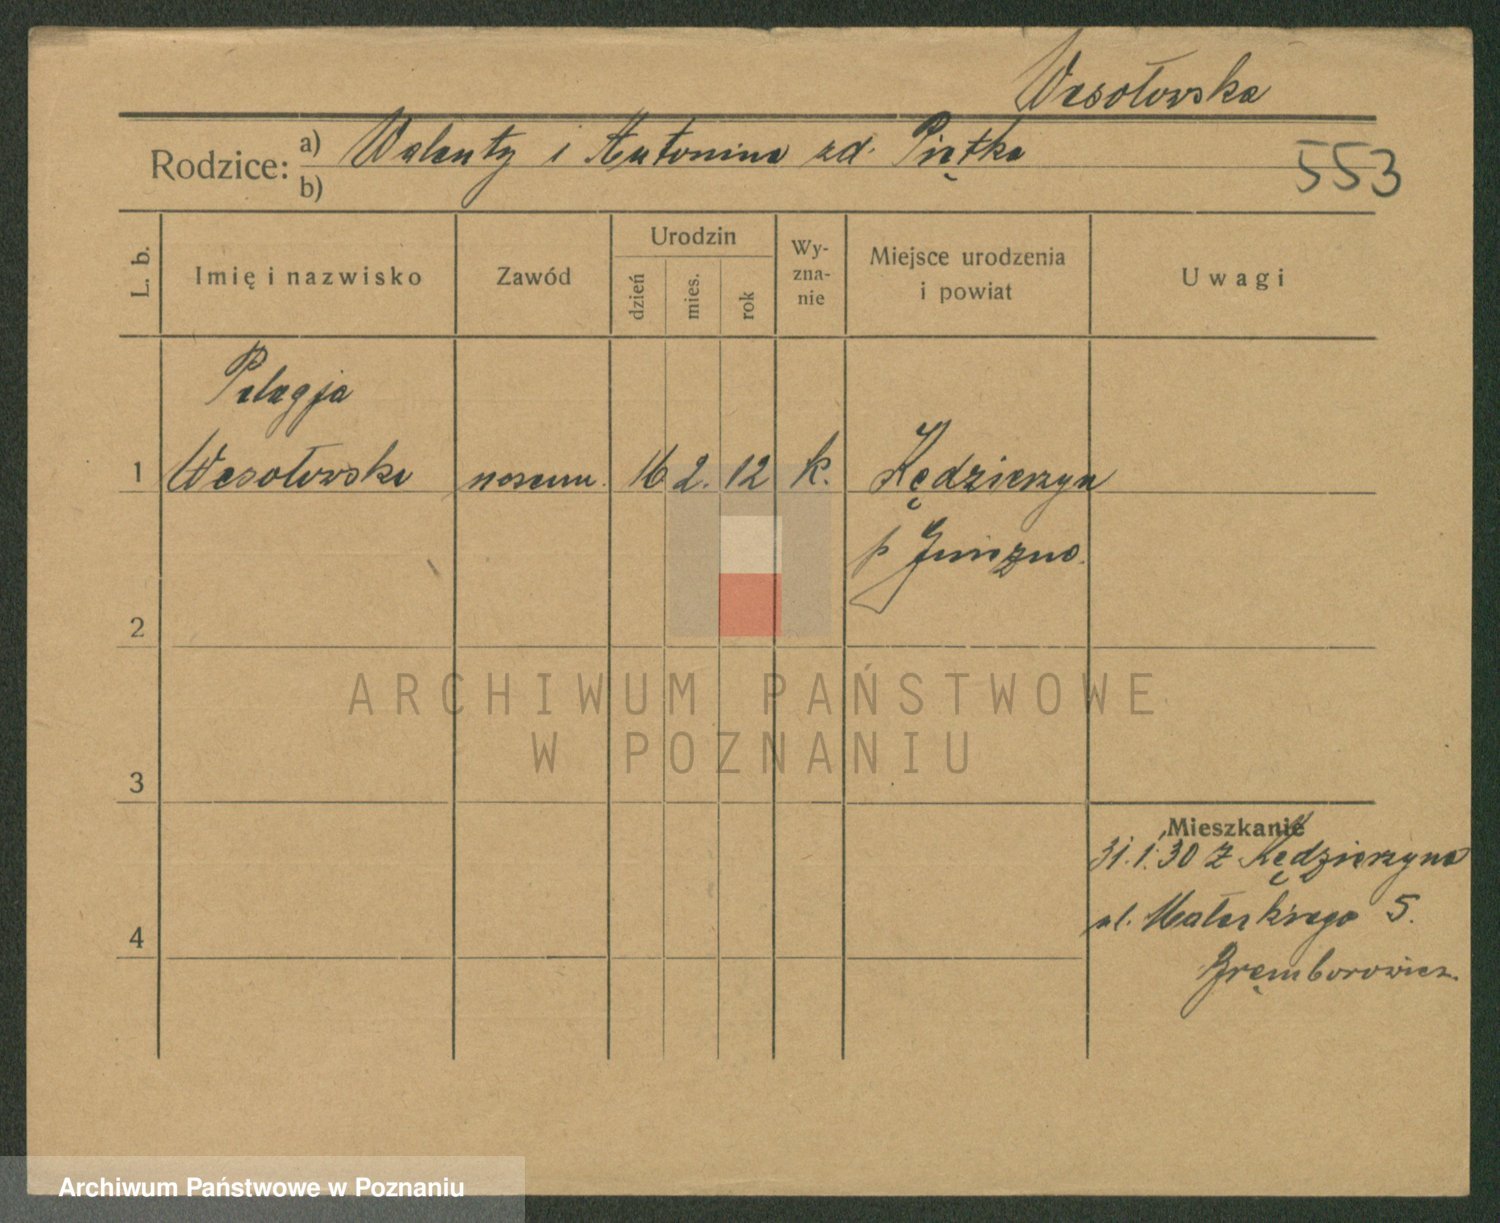 Wesołowska
Rodzice: a) Walenty i Antonina zd. Piętka
b)
553
L. b.
Imię i nazwisko
Zawód
Urodzin
dzień
mies.
rok
Wy-
zna-
nie
Miejsce urodzenia
i powiat
Uwagi
Pelagja
1 Wesołowska 16 2. 12 k. Kędzierzyn
p Gniezno.
2
ARCHIWUM PAŃSTWOWE
W POZNANIU
3
Mieszkanie
31.1.30 z Kędzierzyna
ul. 5.
4
Gremborowicz
Archiwum Państwowe w Poznaniu